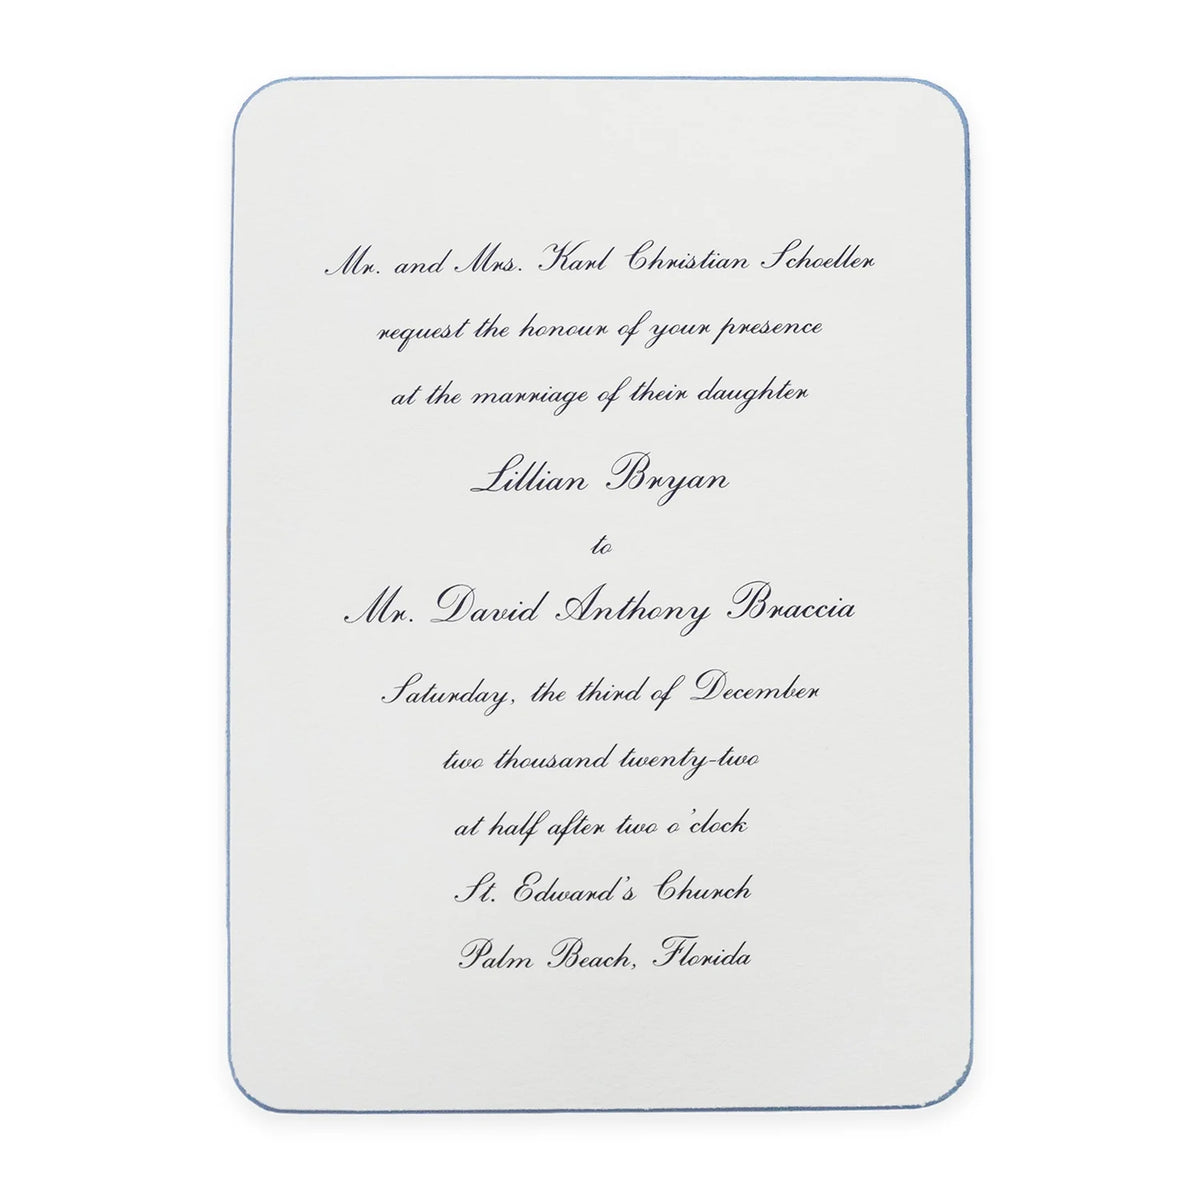 Mr. and Mrs. Karl Christian Schoeller
request the honour of your presence
at the marriage of their daughter
Lillian Bryan
to
Mr. David Anthony Braccia
Saturday, the third of December
two thousand twenty-two
at half after two o'clock
St. Edward's Church
Palm Beach, Florida